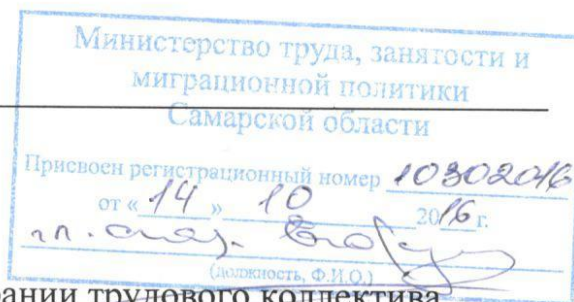 Министерство труда, занятости и
миграционной политики
Самарской области
Присвоен регистрационный номер 10302016
от « 14 » 10 2016 г.
(должность, Ф.И.О.)
рании трудового коллектива